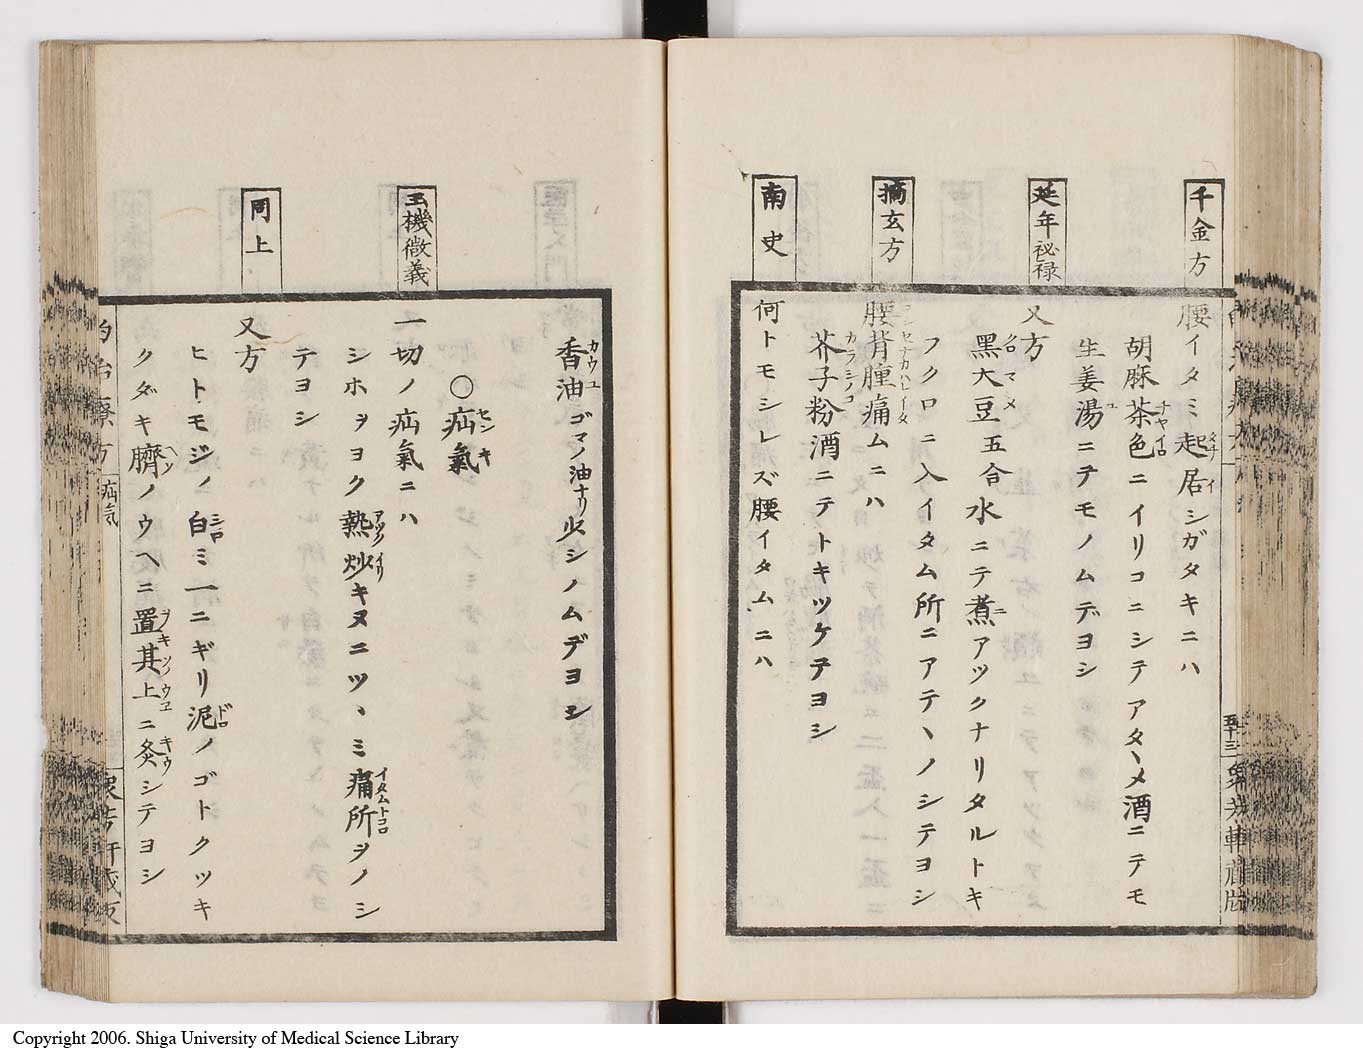 千金方
腰イタミ起居シガタキニハ
胡麻茶色ニイリコニシテアタヽメ酒ニテモ
生姜湯ニテモノムデヨシ
延年祕禄
又方
黒大豆五合水ニテ煮アツクナリタルトキ
フクロニ入イタム所ニアテヽノシテヨシ
摘玄方
腰背腫痛ムニハ
芥子粉酒ニテトキツケテヨシ
南史
何トモシレズ腰イタムニハ
香油ゴマノ油ナリ少シノムデヨシ
〇疝氣
玉機微義
一切ノ疝氣ニハ
シホヲヨク熱炒キヌニツヽミ痛所ヲノシ
テヨシ
同上
又方
ヒトモジノ白ミ一ニギリ泥ノゴトクツキ
クダキ臍ノウヘニ置其上ニ灸シテヨシ
疝気
Copyright 2006. Shiga University of Medical Science Library